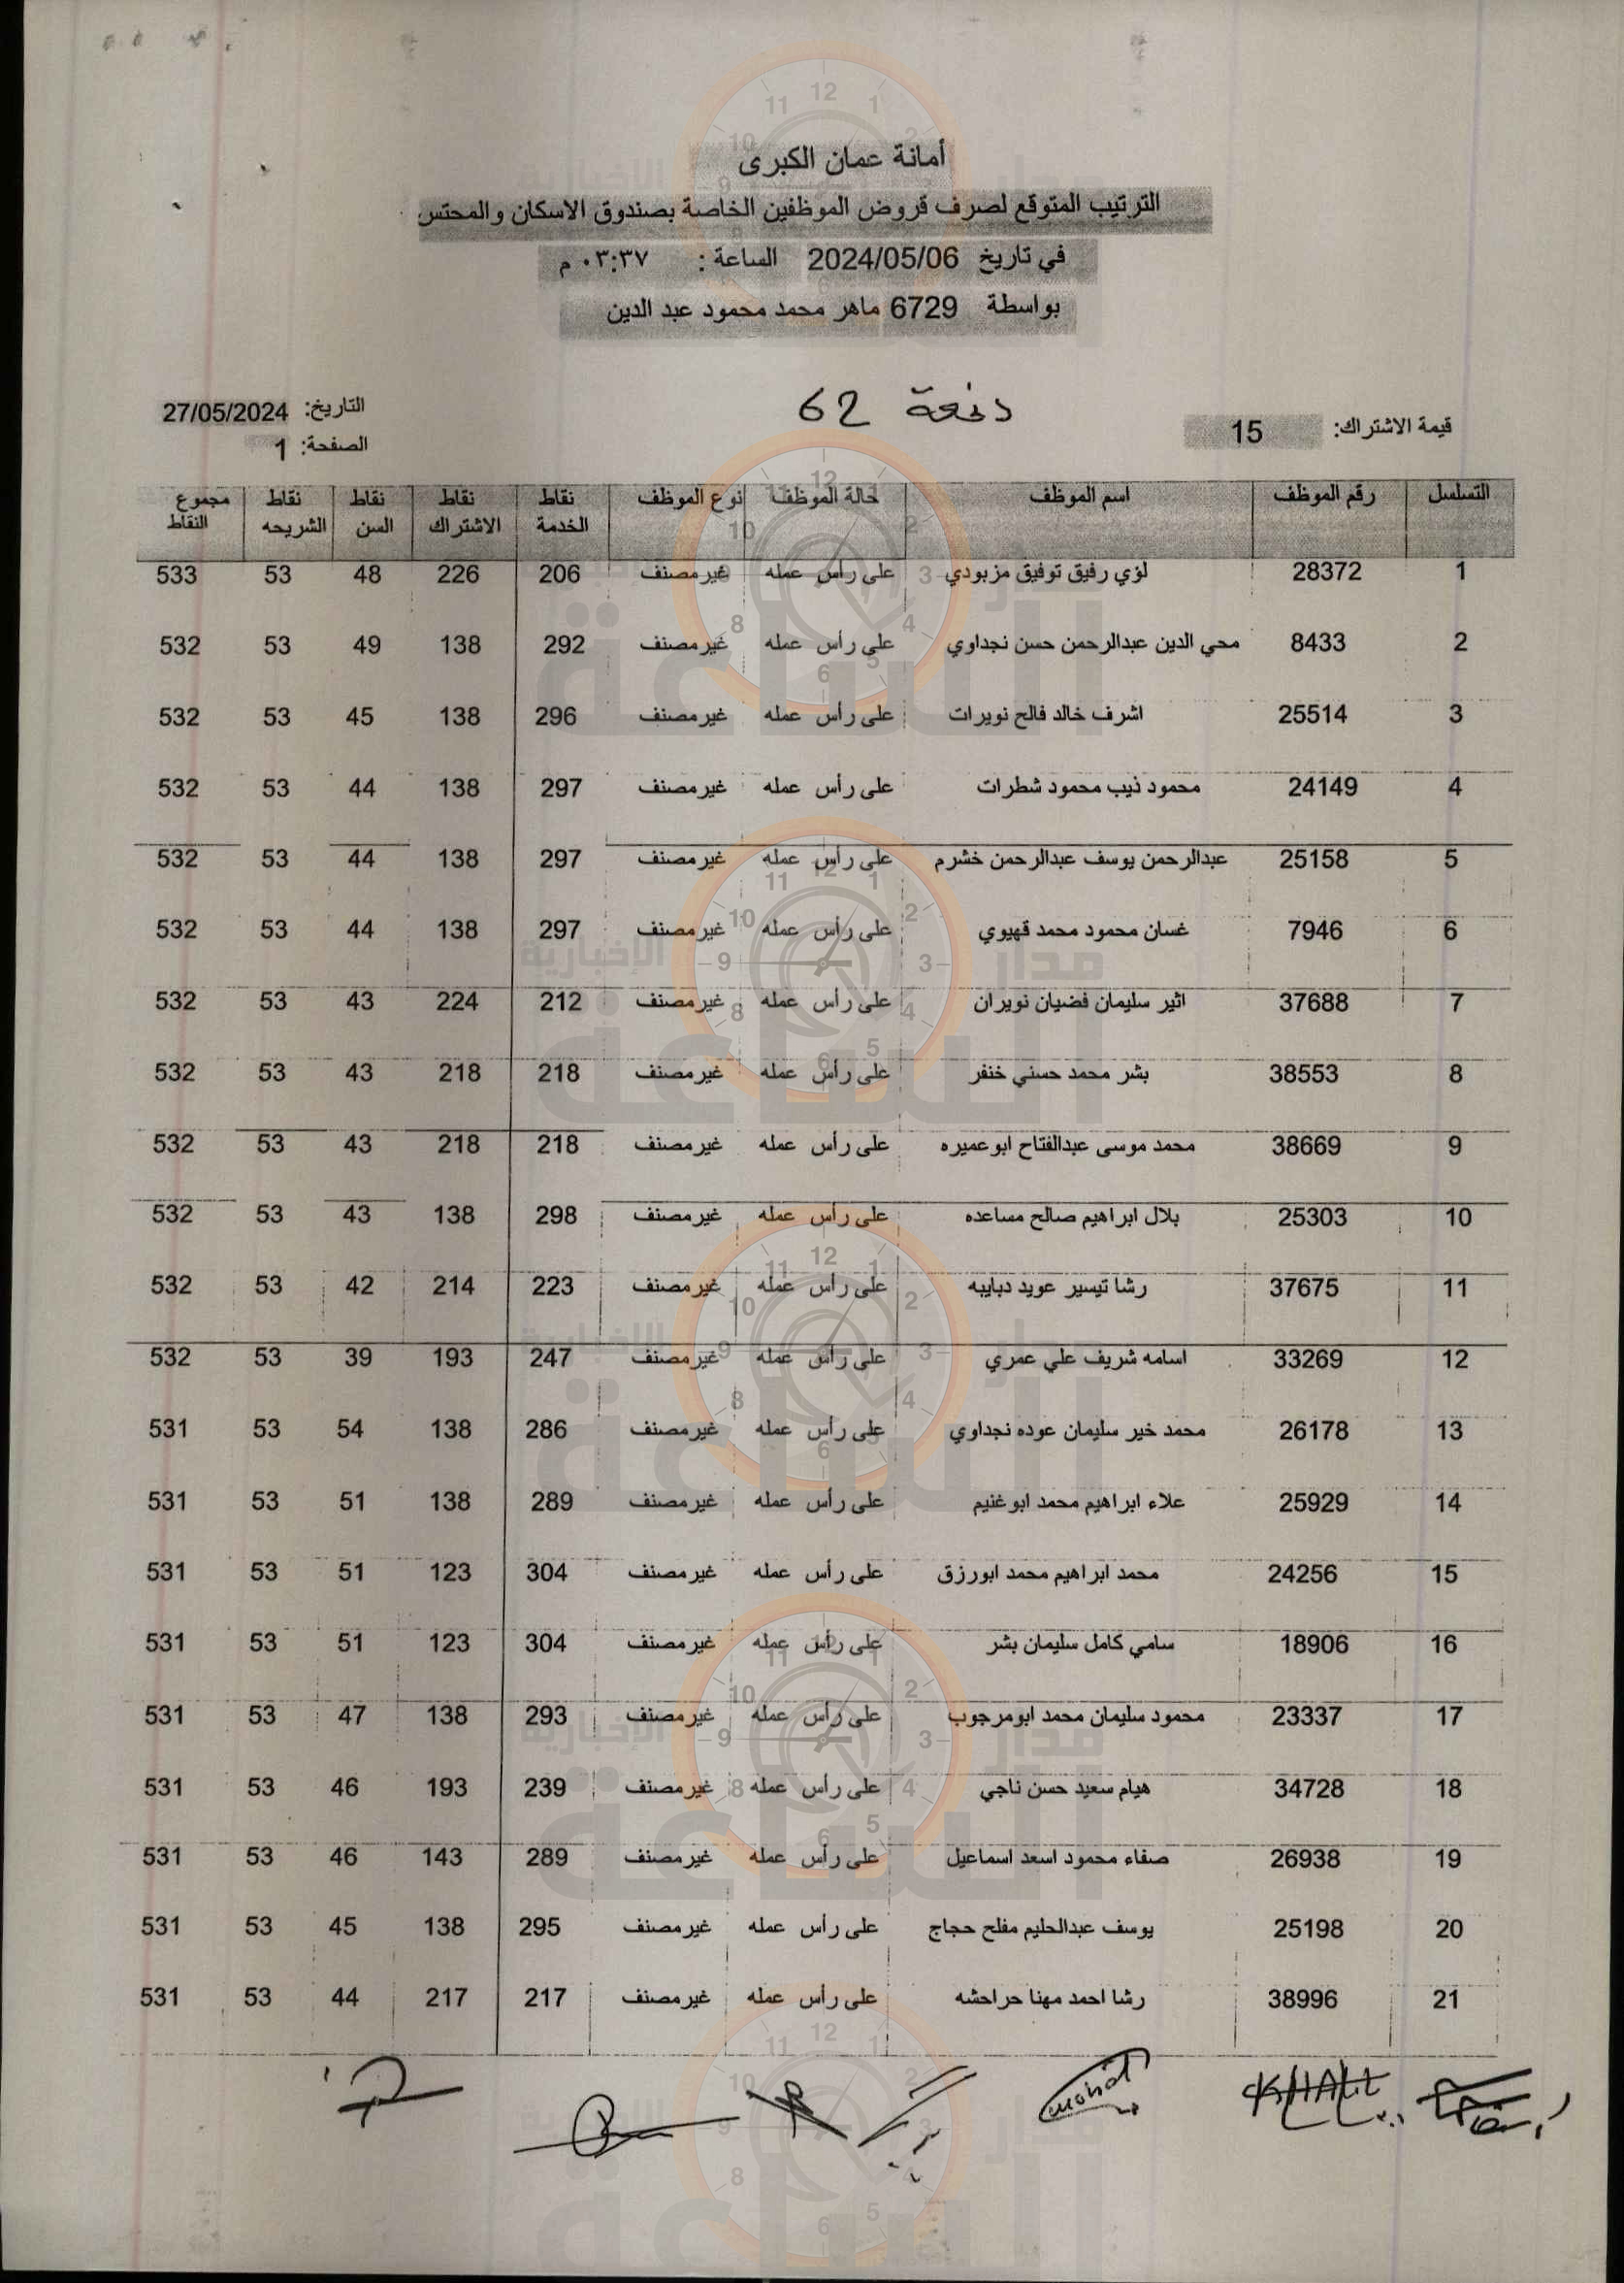 أمانة عمان الكبرى
الترتيب المتوقع لصرف قروض الموظفين الخاصة بصندوق الاسكان والمحتس
في تاريخ 2024/05/06 الساعة : ٠٣:٣٧ م
بواسطة 6729 ماهر محمد محمود عبد الدين
دفعة 62
قيمة الاشتراك: 15
التاريخ: 27/05/2024
الصفحة: 1
التسلسل رقم الموظف اسم الموظف حالة الموظف نوع الموظف نقاط الخدمة نقاط الاشتراك نقاط السن نقاط الشريحه مجموع النقاط
1 28372 لؤي رفيق توفيق مزبودي على رأس عمله غير مصنف 206 226 48 53 533
2 8433 محي الدين عبدالرحمن حسن نجداوي على رأس عمله غير مصنف 292 138 49 53 532
3 25514 اشرف خالد فالح نويرات على رأس عمله غير مصنف 296 138 45 53 532
4 24149 محمود ذيب محمود شطرات على رأس عمله غير مصنف 297 138 44 53 532
5 25158 عبدالرحمن يوسف عبدالرحمن خشرم على رأس عمله غير مصنف 297 138 44 53 532
6 7946 غسان محمود محمد قهيوي على رأس عمله غير مصنف 297 138 44 53 532
7 37688 اثير سليمان فضيان نويران على رأس عمله غير مصنف 212 224 43 53 532
8 38553 بشر محمد حسني خنفر على رأس عمله غير مصنف 218 218 43 53 532
9 38669 محمد موسى عبدالفتاح ابوعميره على رأس عمله غير مصنف 218 218 43 53 532
10 25303 بلال ابراهيم صالح مساعده على رأس عمله غير مصنف 298 138 43 53 532
11 37675 رشا تيسير عويد دبايبه على رأس عمله غير مصنف 223 214 42 53 532
12 33269 اسامه شريف علي عمري على رأس عمله غير مصنف 247 193 39 53 532
13 26178 محمد خير سليمان عوده نجداوي على رأس عمله غير مصنف 286 138 54 53 531
14 25929 علاء ابراهيم محمد ابوغنيم على رأس عمله غير مصنف 289 138 51 53 531
15 24256 محمد ابراهيم محمد ابورزق على رأس عمله غير مصنف 304 123 51 53 531
16 18906 سامي كامل سليمان بشر على رأس عمله غير مصنف 304 123 51 53 531
17 23337 محمود سليمان محمد ابومرجوب على رأس عمله غير مصنف 293 138 47 53 531
18 34728 هيام سعيد حسن ناجي على رأس عمله غير مصنف 239 193 46 53 531
19 26938 صفاء محمود اسعد اسماعيل على رأس عمله غير مصنف 289 143 46 53 531
20 25198 يوسف عبدالحليم مفلح حجاج على رأس عمله غير مصنف 295 138 45 53 531
21 38996 رشا احمد مهنا حراحشه على رأس عمله غير مصنف 217 217 44 53 531
KHALIL
مدار الساعة الإخبارية